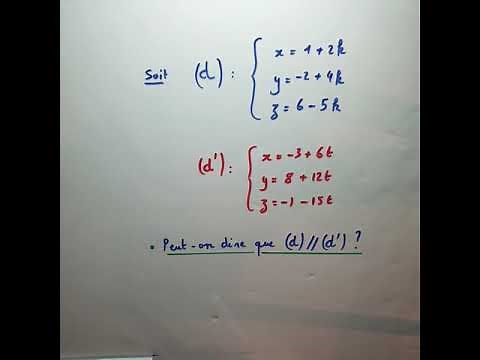 Soit (d) : { x = 1 + 2k
y = -2 + 4k
z = 6 - 5k
(d') : { x = -3 + 6t
y = 8 + 12t
z = -1 - 15t
• Peut-on dire que (d) // (d') ?